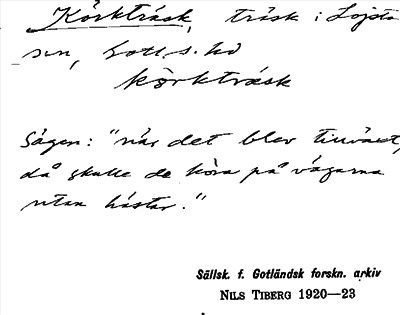 Körkträsk, träsk i Lojsta
sn, Gotl. s. hd
körkträsk
Sägen: "när det blev
då skulle de köra på vägarna
utan hästar."
Sällsk. f. Gotländsk forskn. arkiv
NILS TIBERG 1920—23